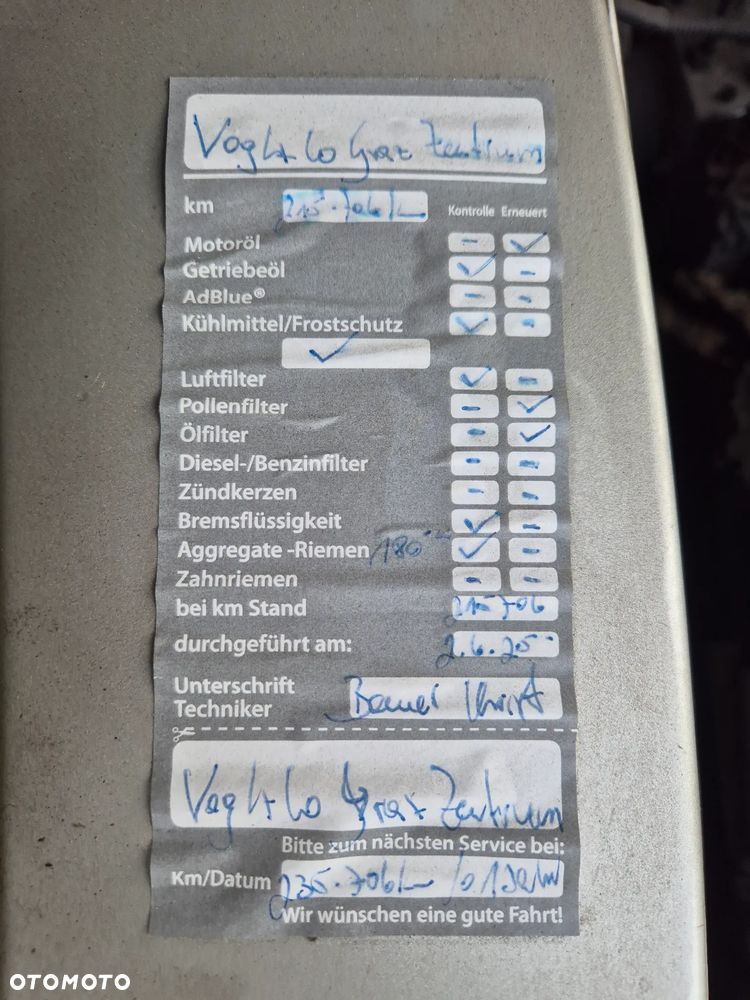 Vogl + Co Graz Zentrum
km 215.706 km
Kontrolle Erneuert
Motoröl - ✓
Getriebeöl ✓ -
AdBlue® - -
Kühlmittel/Frostschutz ✓ -
✓
Luftfilter ✓ -
Pollenfilter - ✓
Ölfilter - ✓
Diesel-/Benzinfilter - -
Zündkerzen - -
Bremsflüssigkeit ✓ -
Aggregate -Riemen 180 ✓ -
Zahnriemen - -
bei km Stand 215706
durchgeführt am: 2.6.25
Unterschrift
Techniker
Vogl + Co Graz Zentrum
Bitte zum nächsten Service bei:
Km/Datum 235.706 km /o 1 Jahr
Wir wünschen eine gute Fahrt!
OTOMOTO